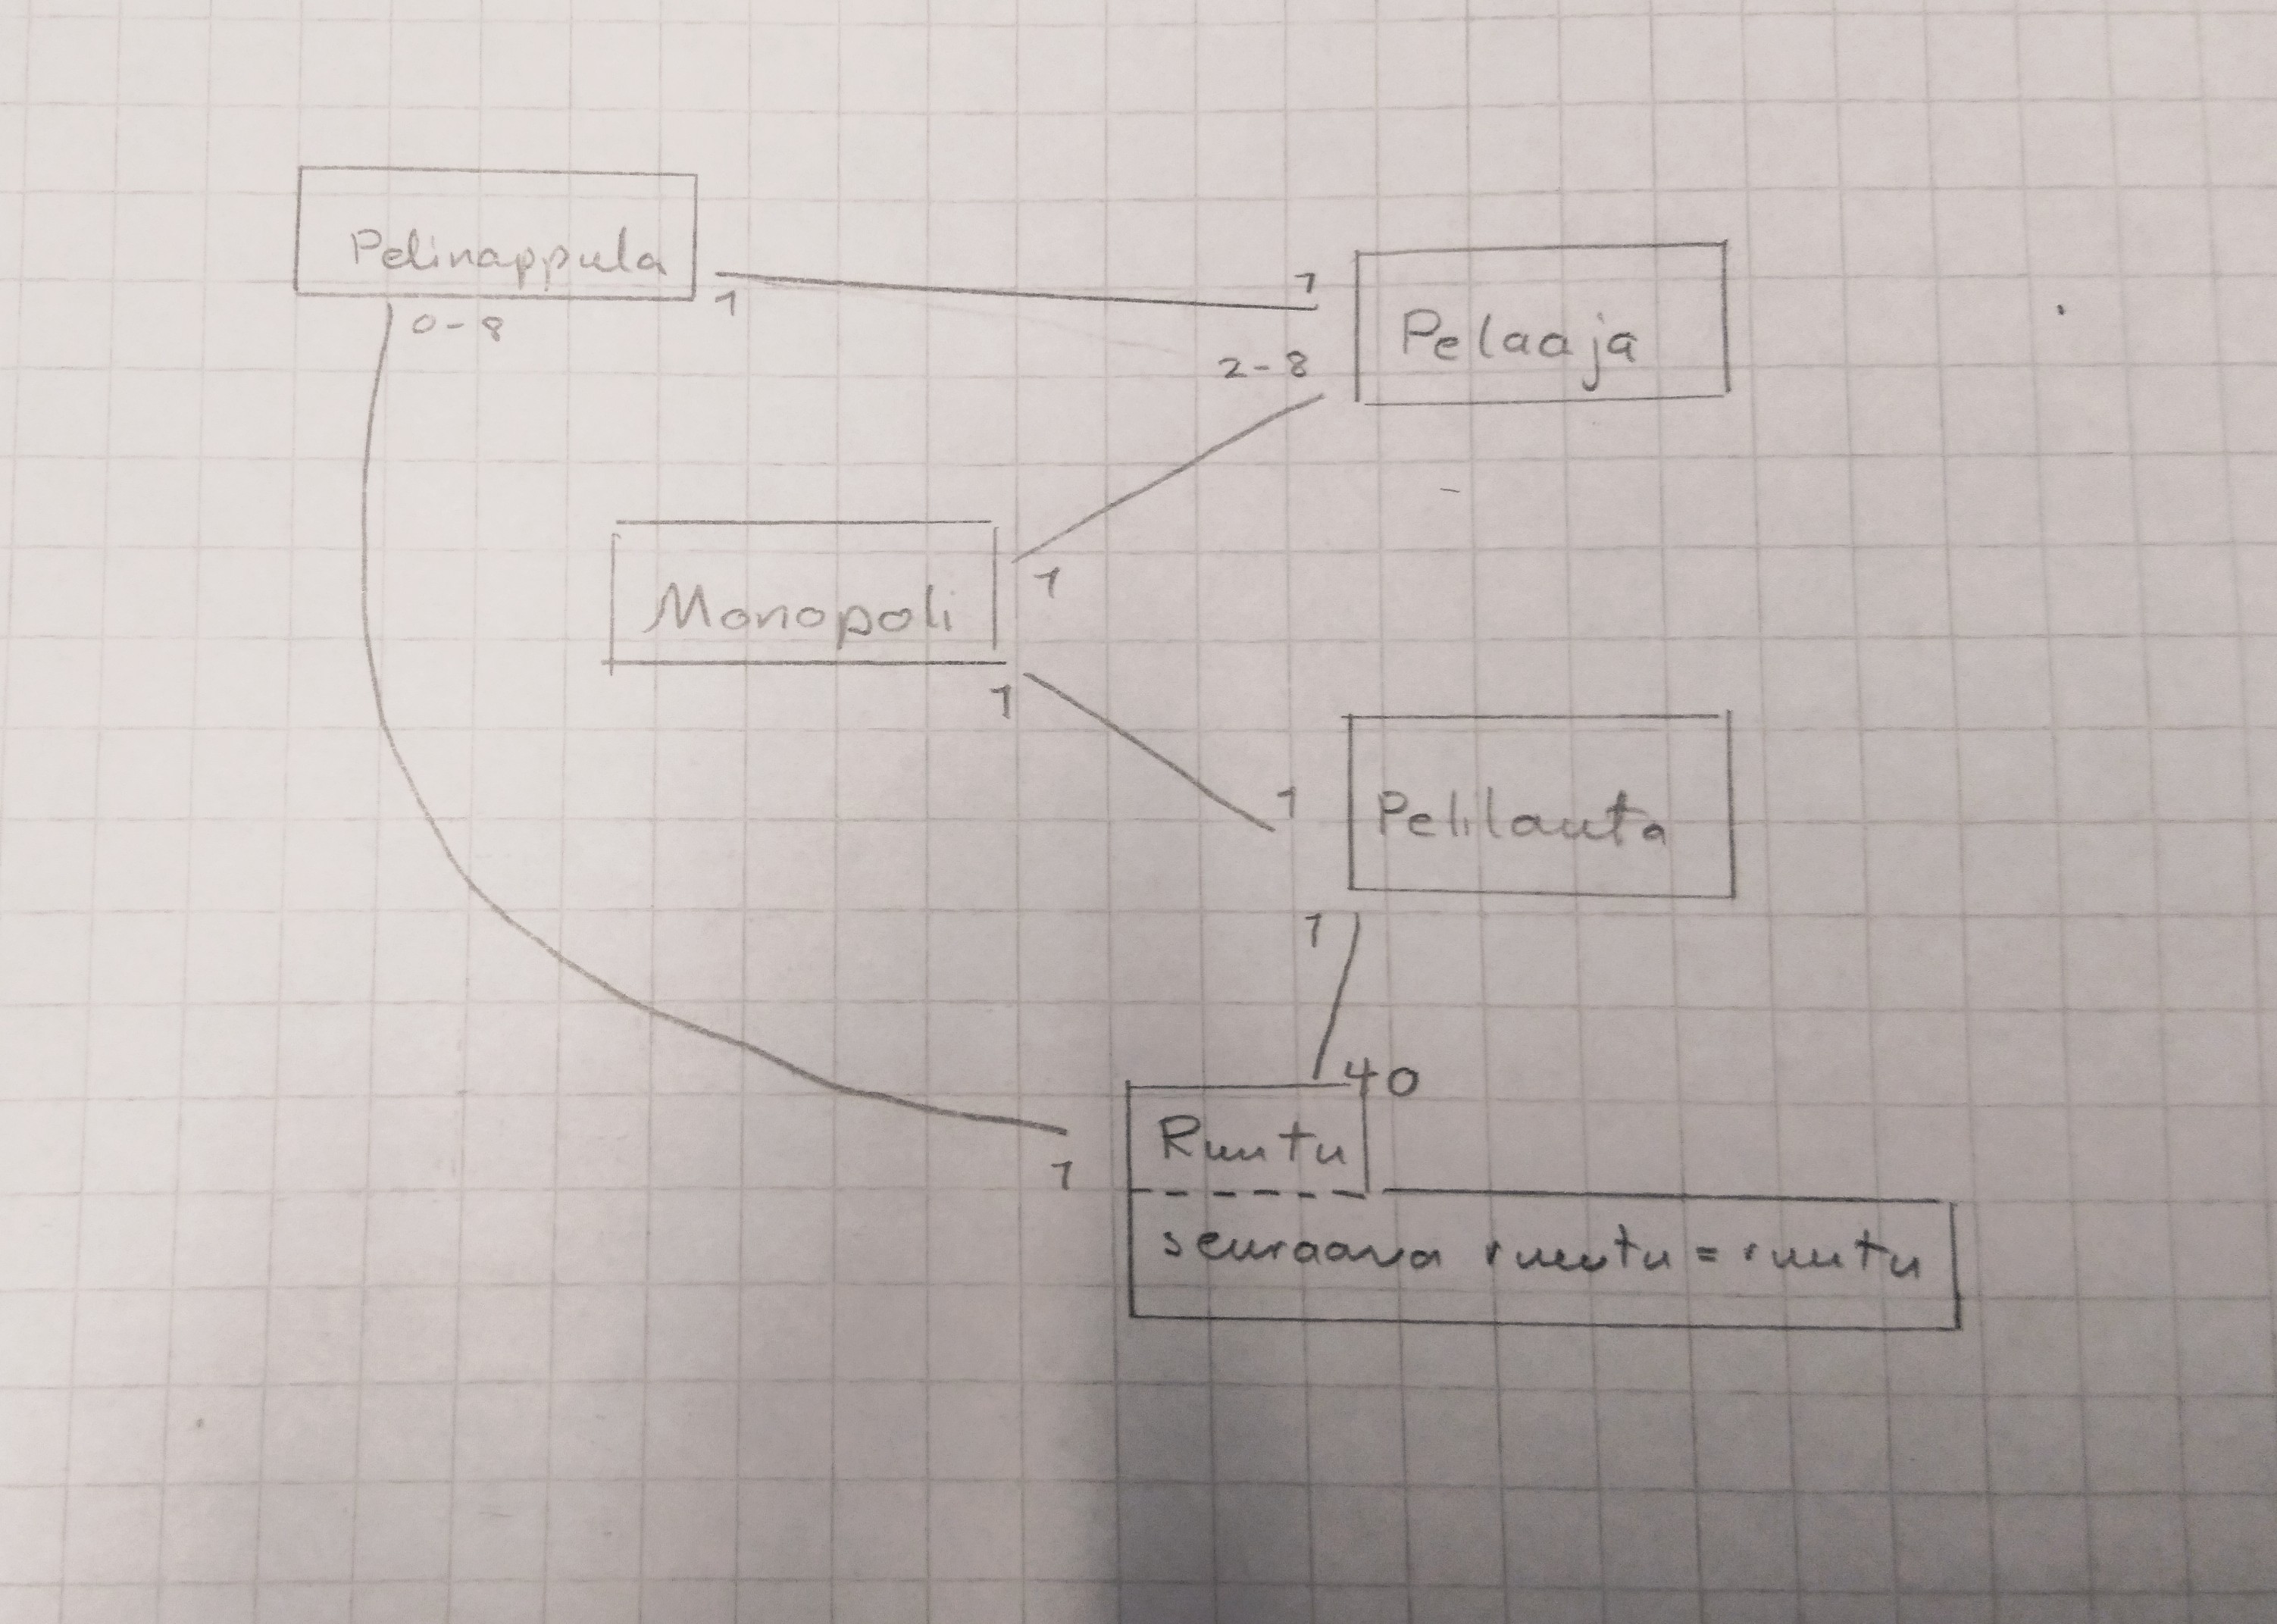 Pelinappula
0-8
1
1
Pelaaja
2-8
Monopoli
1
1
1
Pelilauta
1
40
Ruutu
1
seuraava ruutu = ruutu